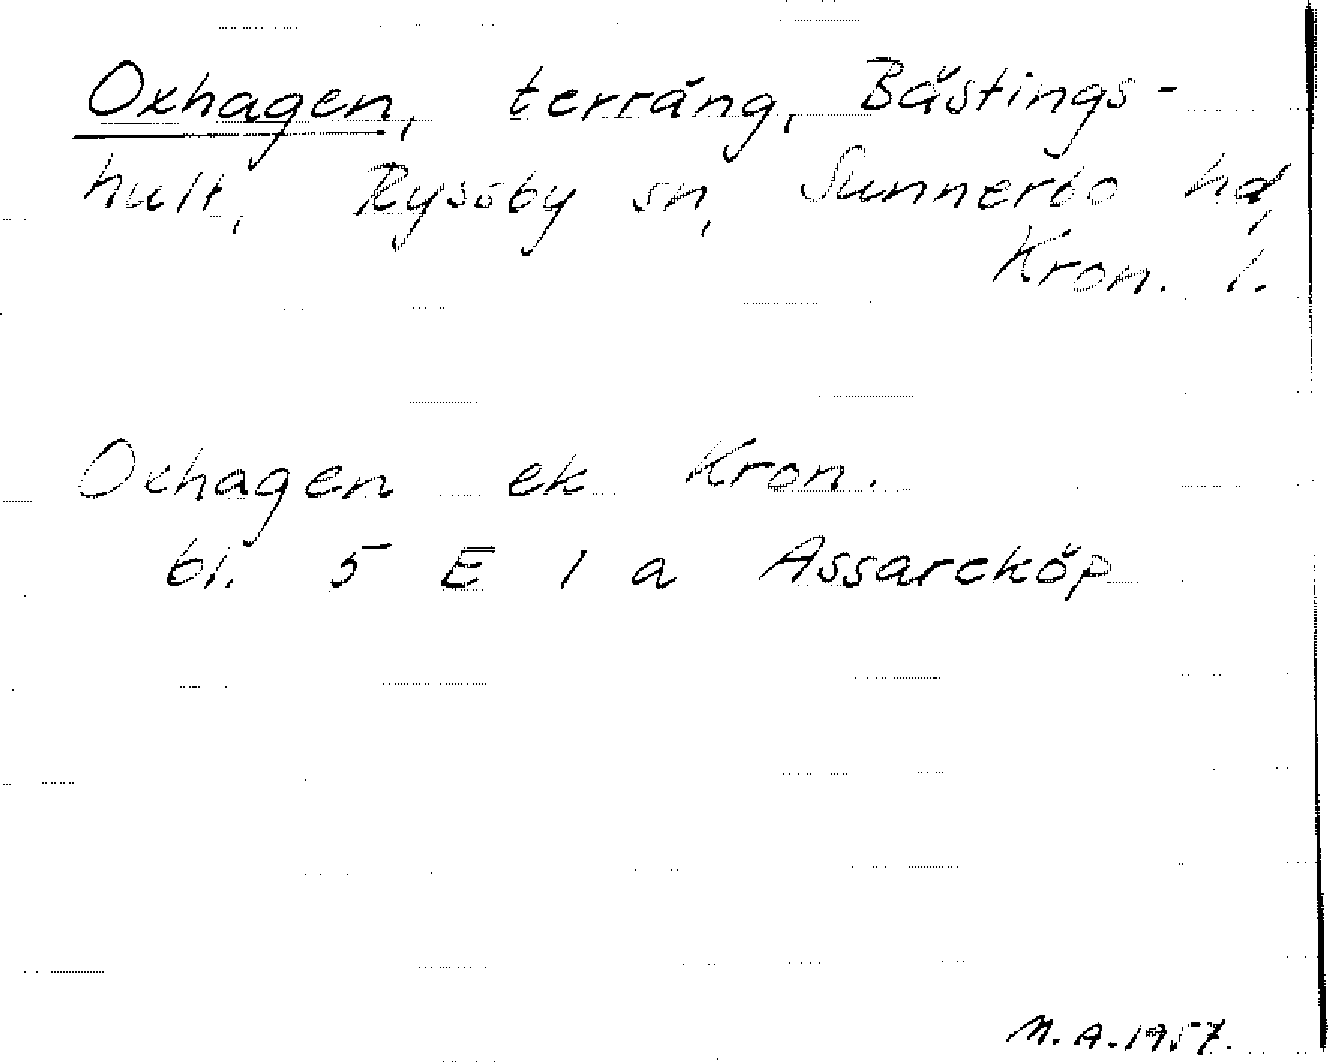 Oxhagen, terräng, Bästings-
hult, Ryssby sn, Sunnerbo hd,
Kron. l.
Oxhagen ek Kron.
bl. 5 E 1 a Assareköp
M.A. 1957.